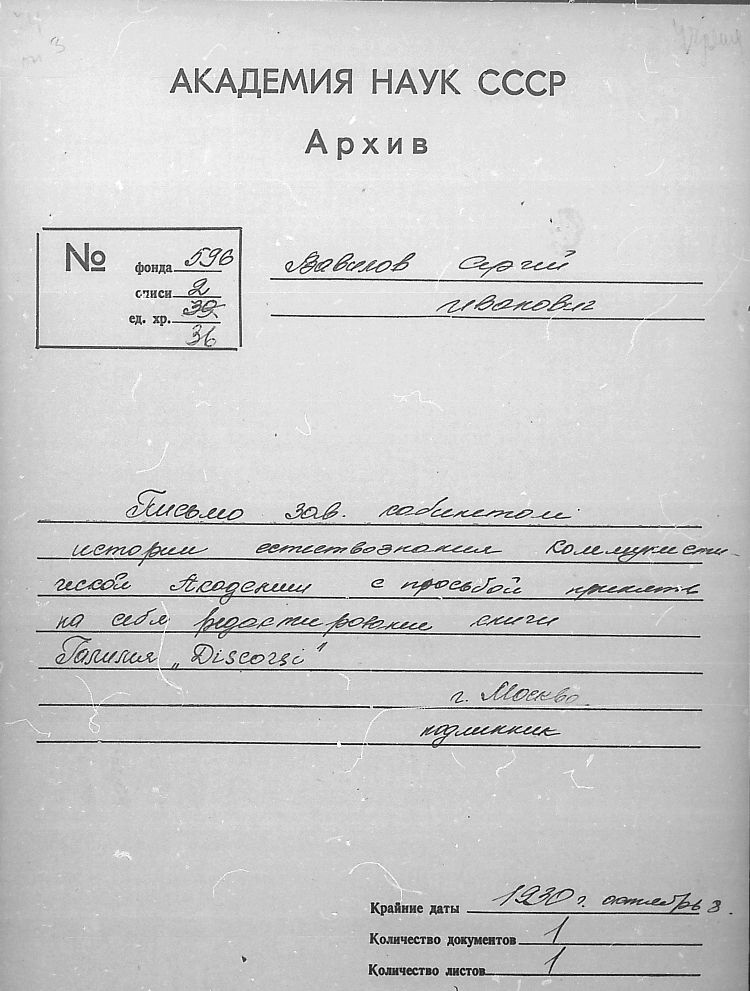 АКАДЕМИЯ НАУК СССР
Архив
№ фонда 596
описи 2
ед. хр. 39
36
Вавилов Сергей
Иванович
Письмо зав. кабинетом
истории естествознания Коммунисти-
ческой Академии с просьбой принять
на себя редактирование книги
Галилея „Discorsi"
г. Москва.
подлинник
Крайние даты 1930 г. октябрь 8.
Количество документов 1
Количество листов 1